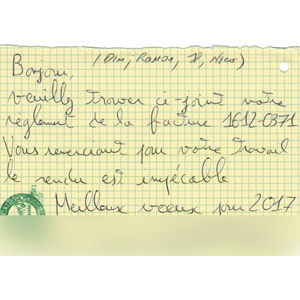 Bonjour, (Dim, Ramon, JP, Nico)
veuillez trouver ci-joint notre
règlement de la facture 1612-0371
Vous remerciant pour votre travail
le rendu est impécable
Meilleux voeux pour 2017